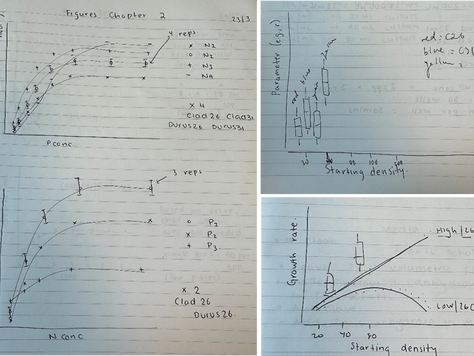 Figures Chapter 2
23/3
4 reps
x N1
o N2
+ N3
- N4
x 4
Clad 26 Clad 31
Durus 26 Durus 31
P conc
3 reps
o P1
x P2
+ P3
x 2
Clad 26
Durus 26
N conc
Parameter (e.g. r)
red = C26
blue = C31
Starting density
Growth rate
High/26
Low/26
20 40 80
Starting density